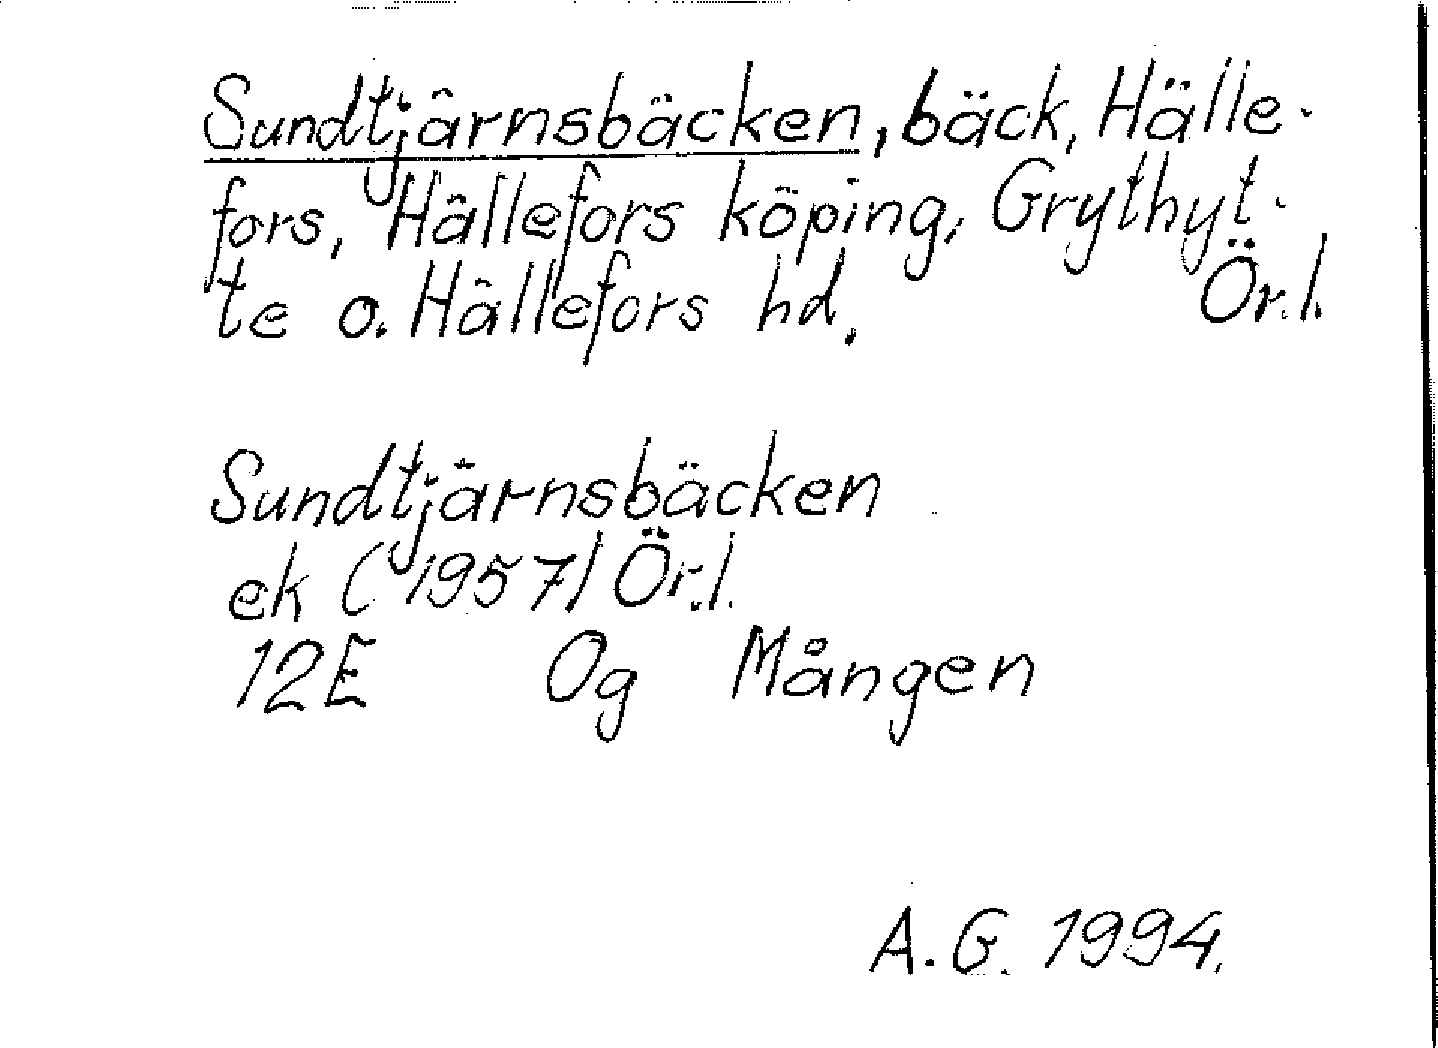 Sundtjärnsbäcken, bäck, Hälle-
fors, Hällefors köping, Grythyt-
te o. Hällefors hd. Ör.l.
Sundtjärnsbäcken
ek (1957) Ör.l.
12E Og Mången
A.G. 1994.